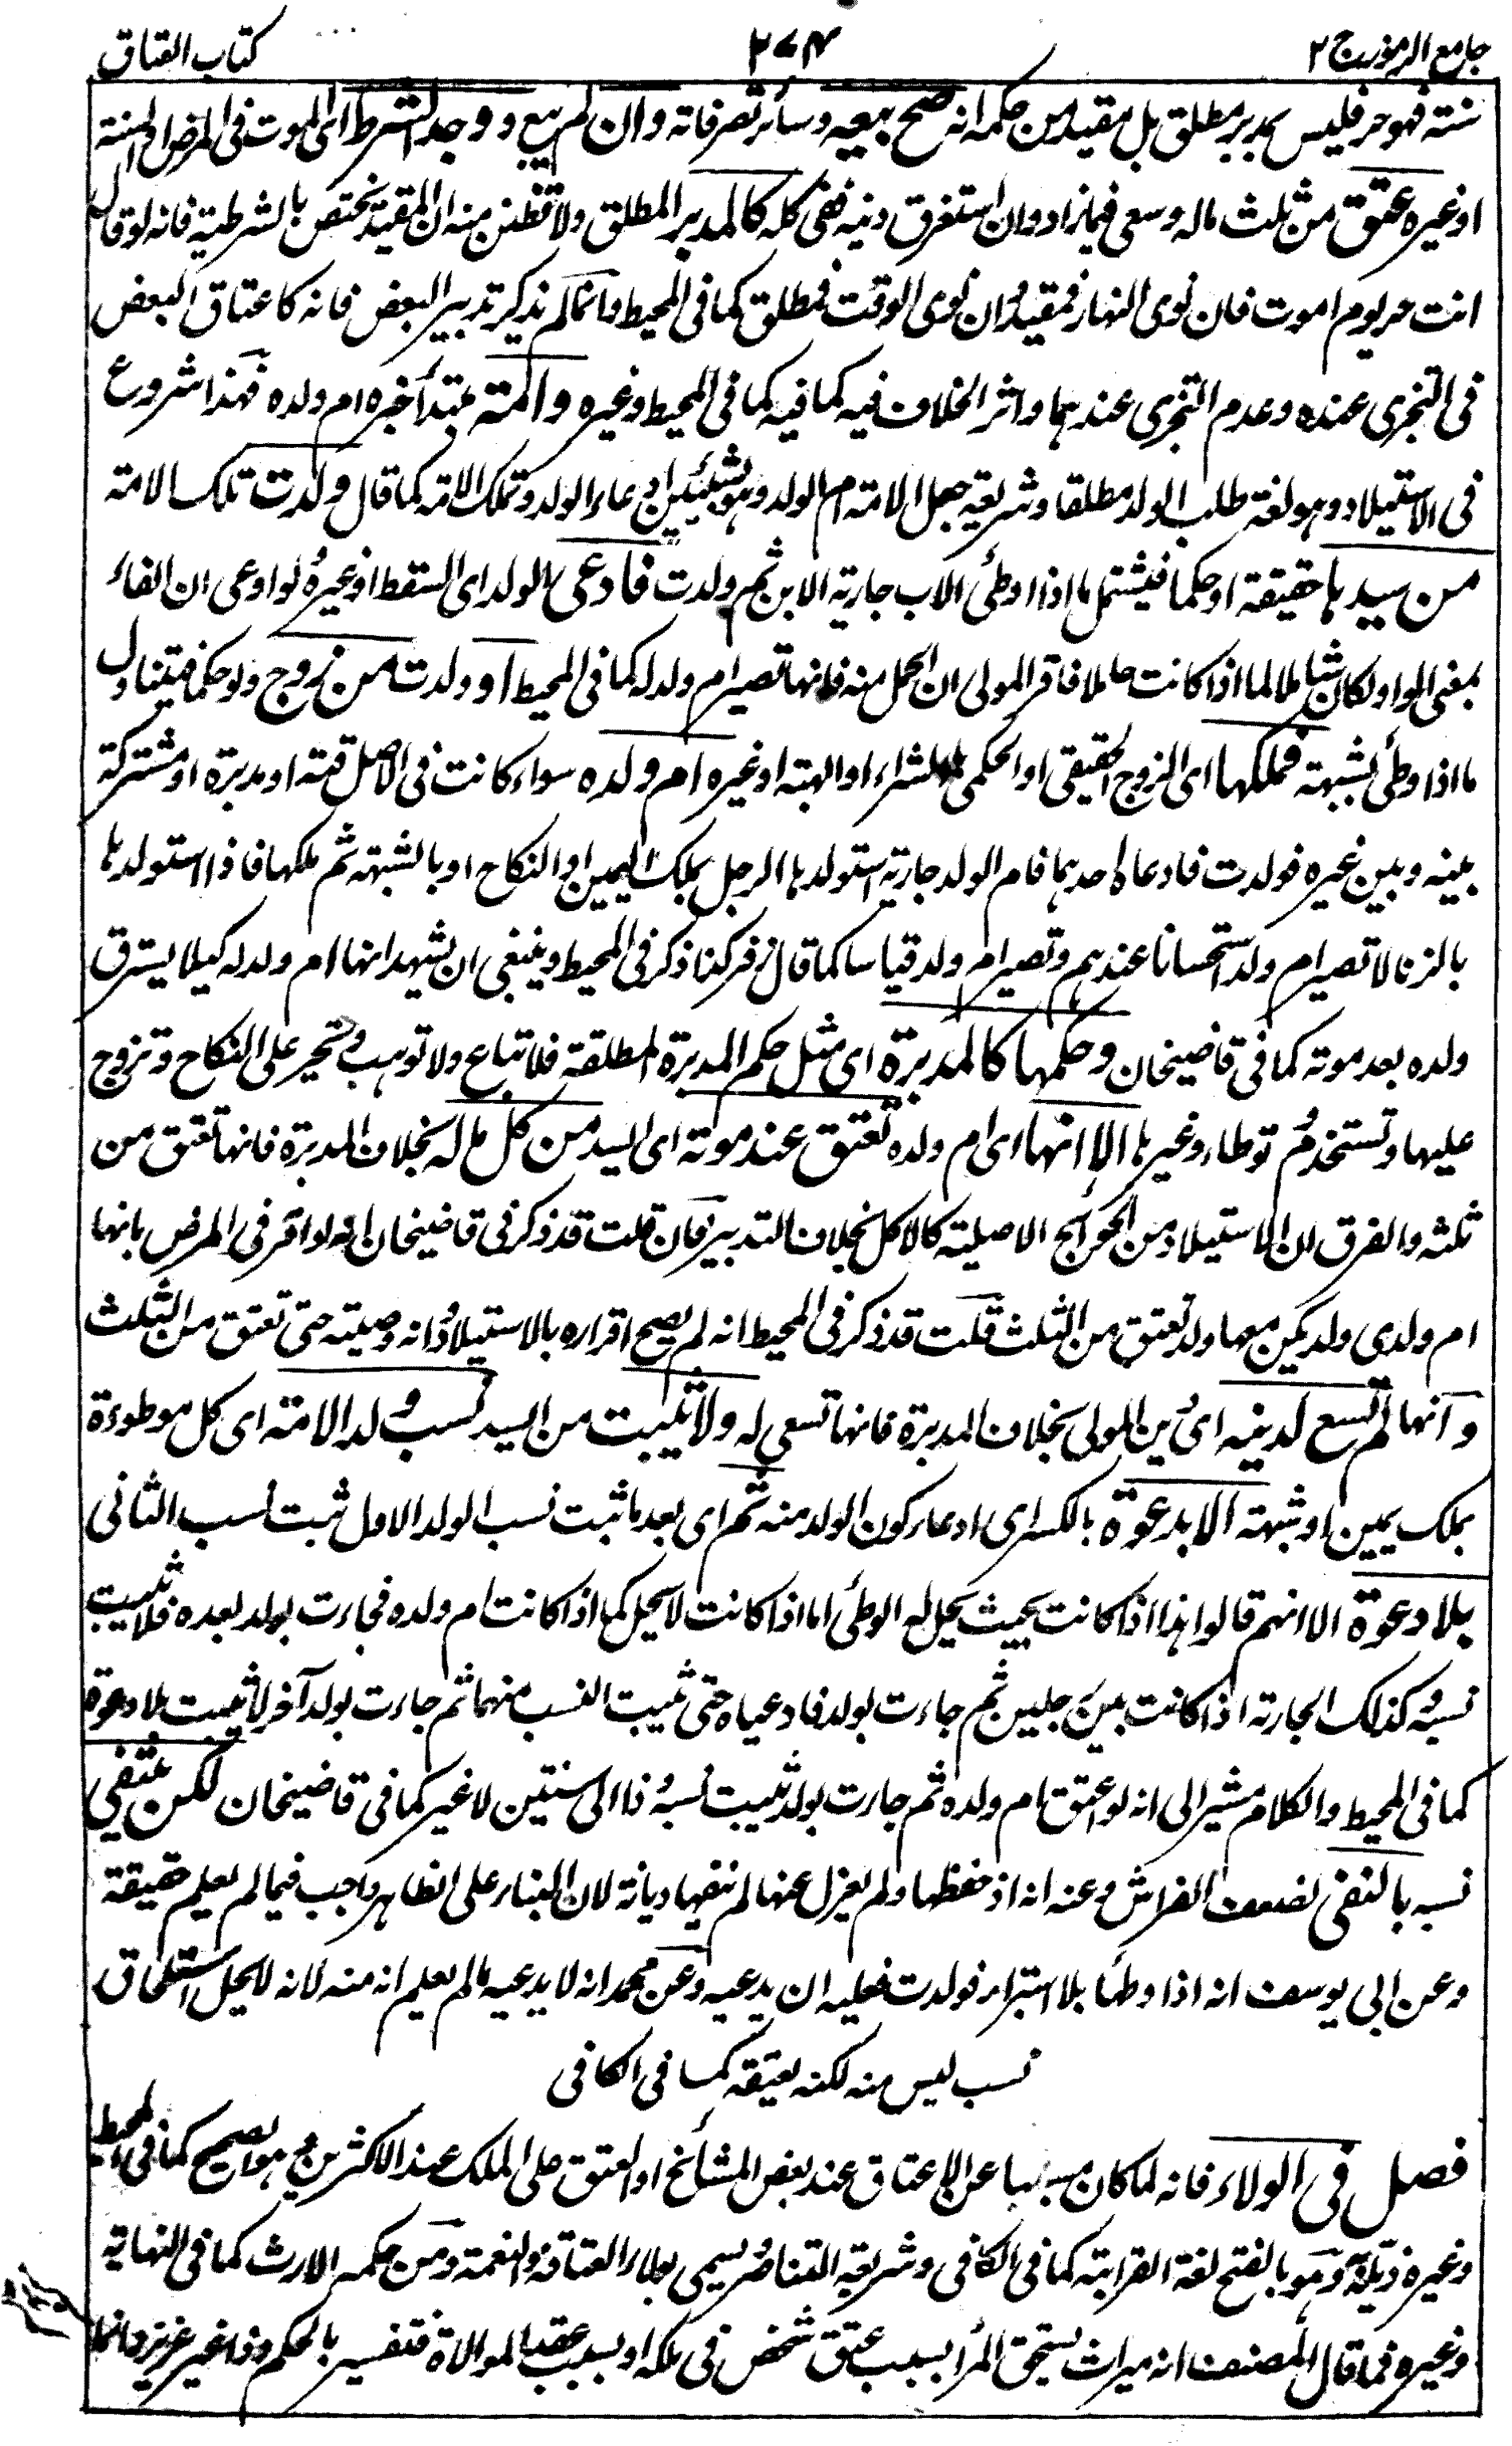 جامع الرموز ج ٢
٢٧٤
كتاب العتاق
سنته فهو حر فليس بمدبر مطلق بل مقيد من حكمه انه صح بيعه وسائر تصرفاته وان لم يبع ووجد الشرط اى الموت فى المرض او السنة
او غيره عتق من ثلث ماله وسعى فيما زاد وان استغرق دينه ففى كله كالمدبر المطلق ولا تظنن منه ان المقيد يختص بالشرطية فانه لو قال
انت حر يوم اموت فان نوى النهار فمقيد وان نوى الوقت فمطلق كما فى المحيط وانما لم يذكر تدبير البعض فانه كاعتاق البعض
فى التجزى عنده وعدم التجزى عندهما واثر الخلاف فيه كما فيه كما فى المحيط وغيره وامة مبتدأ خبره ام ولده فهذا شروع
فى الاستيلاد وهو لغة طلب الولد مطلقا وشريعة جعل الامة ام الولد وهو بشيئين ادعاء الولد وتملك الامة كما قال ولدت تلك الامة
من سيدها حقيقة او حكما فيشتمل ما اذا وطئ الاب جارية الابن ثم ولدت فادعى الولد اى السقط او غيره لو ادعى ان الفاء
بمعنى الواو لكان شاملا لما اذا كانت حاملا فاقر المولى ان الحمل منه فانها تصير ام ولد له كما فى المحيط او ولدت من زوج ولو حكما فيتناول
ما اذا وطئ بشبهة فملكها اى الزوج الحقيقى او الحكمى بالشراء او الهبة او غيره ام ولده سواء كانت فى الاصل قنة او مدبرة او مشتركة
بينه وبين غيره فولدت فادعاه احدهما فام الولد جارية استولدها الرجل بملك اليمين او النكاح او بالشبهة ثم ملكها فاذا استولدها
بالزنا لا تصير ام ولد استحسانا عندهم وتصير ام ولد قياسا كما قال زفر كذا ذكر فى المحيط وينبغى ان يشهد انها ام ولد له كيلا يسترق
ولده بعد موته كما فى قاضيخان وحكمها كالمدبرة اى مثل حكم المدبرة المطلقة فلا تباع ولا توهب وتجبر على النكاح وتزوج
عليها وتستخدم وتوطاء وغيرها الا انها اى ام ولده تعتق عند موته اى السيد من كل ماله بخلاف المدبرة فانها تعتق من
ثلثه والفرق ان الاستيلاد من الحوائج الاصلية كالاكل بخلاف التدبير فان قلت قد ذكر فى قاضيخان انه لو اقر فى المرض بانها
ام ولدى ولم يكن معها ولد تعتق من الثلث قلت قد ذكر فى المحيط انه لم يصح اقراره بالاستيلاد وانه وصية حتى تعتق من الثلث
وانها لم تسع لدينه اى دين المولى بخلاف المدبرة فانها تسعى له ولا يثبت من السيد نسب ولد الامة اى كل موطوءة
بملك يمين او شبهة الا بدعوة بالكسر اى ادعاء كون الولد منه ثم اى بعد ما ثبت نسب الولد الاول ثبت نسب الثانى
بلا دعوة الا انهم قالوا هذا اذا كانت بحيث يحل له الوطئ اما اذا كانت لا يحل كما اذا كانت ام ولده فجاءت بولد بعده فلا يثبت
نسبه وكذلك الجارية اذا كانت بين رجلين ثم جاءت بولد فادعياه حتى ثبت النسب منهما ثم جاءت بولد آخر لا يثبت بلا دعوة
كما فى المحيط والكلام مشير الى انه لو اعتق ام ولده ثم جاءت بولد ثبت نسبه فذا الى سنتين لا غير كما فى قاضيخان لكن ينتفى
نسبه بالنفى لضعف الفراش وعنه انه اذ حفظها ولم يعزل عنها لم ينفها ديانة لان البناء على الظاهر واجب فيما لم يعلم حقيقة
وعن ابى يوسف انه اذا وطئها بلا استبراء فولدت فعليه ان يدعيه وعن محمد انه لا يدعيه ما لم يعلم انه منه لانه لا يحل استلحاق
نسب ليس منه لكنه يعتقه كما فى الكافى
فصل فى الولاء فانه لما كان مسببا عن الاعتاق عند بعض المشائخ او العتق على الملك عند الاكثرين وهو الصحيح كما فى المحيط
وغيره ذيله وهو بالفتح لغة القرابة كما فى الكافى وشريعة التناصر يسمى بولاء العتاقة والنعمة ومن حكمه الارث كما فى النهاية
وغيره فما قال المصنف انه ميراث يستحق المرأ بسبب عتق شخص فى ملكه او بسبب عقد الموالاة فتفسير بالحكم وذا غير عزيز وانما